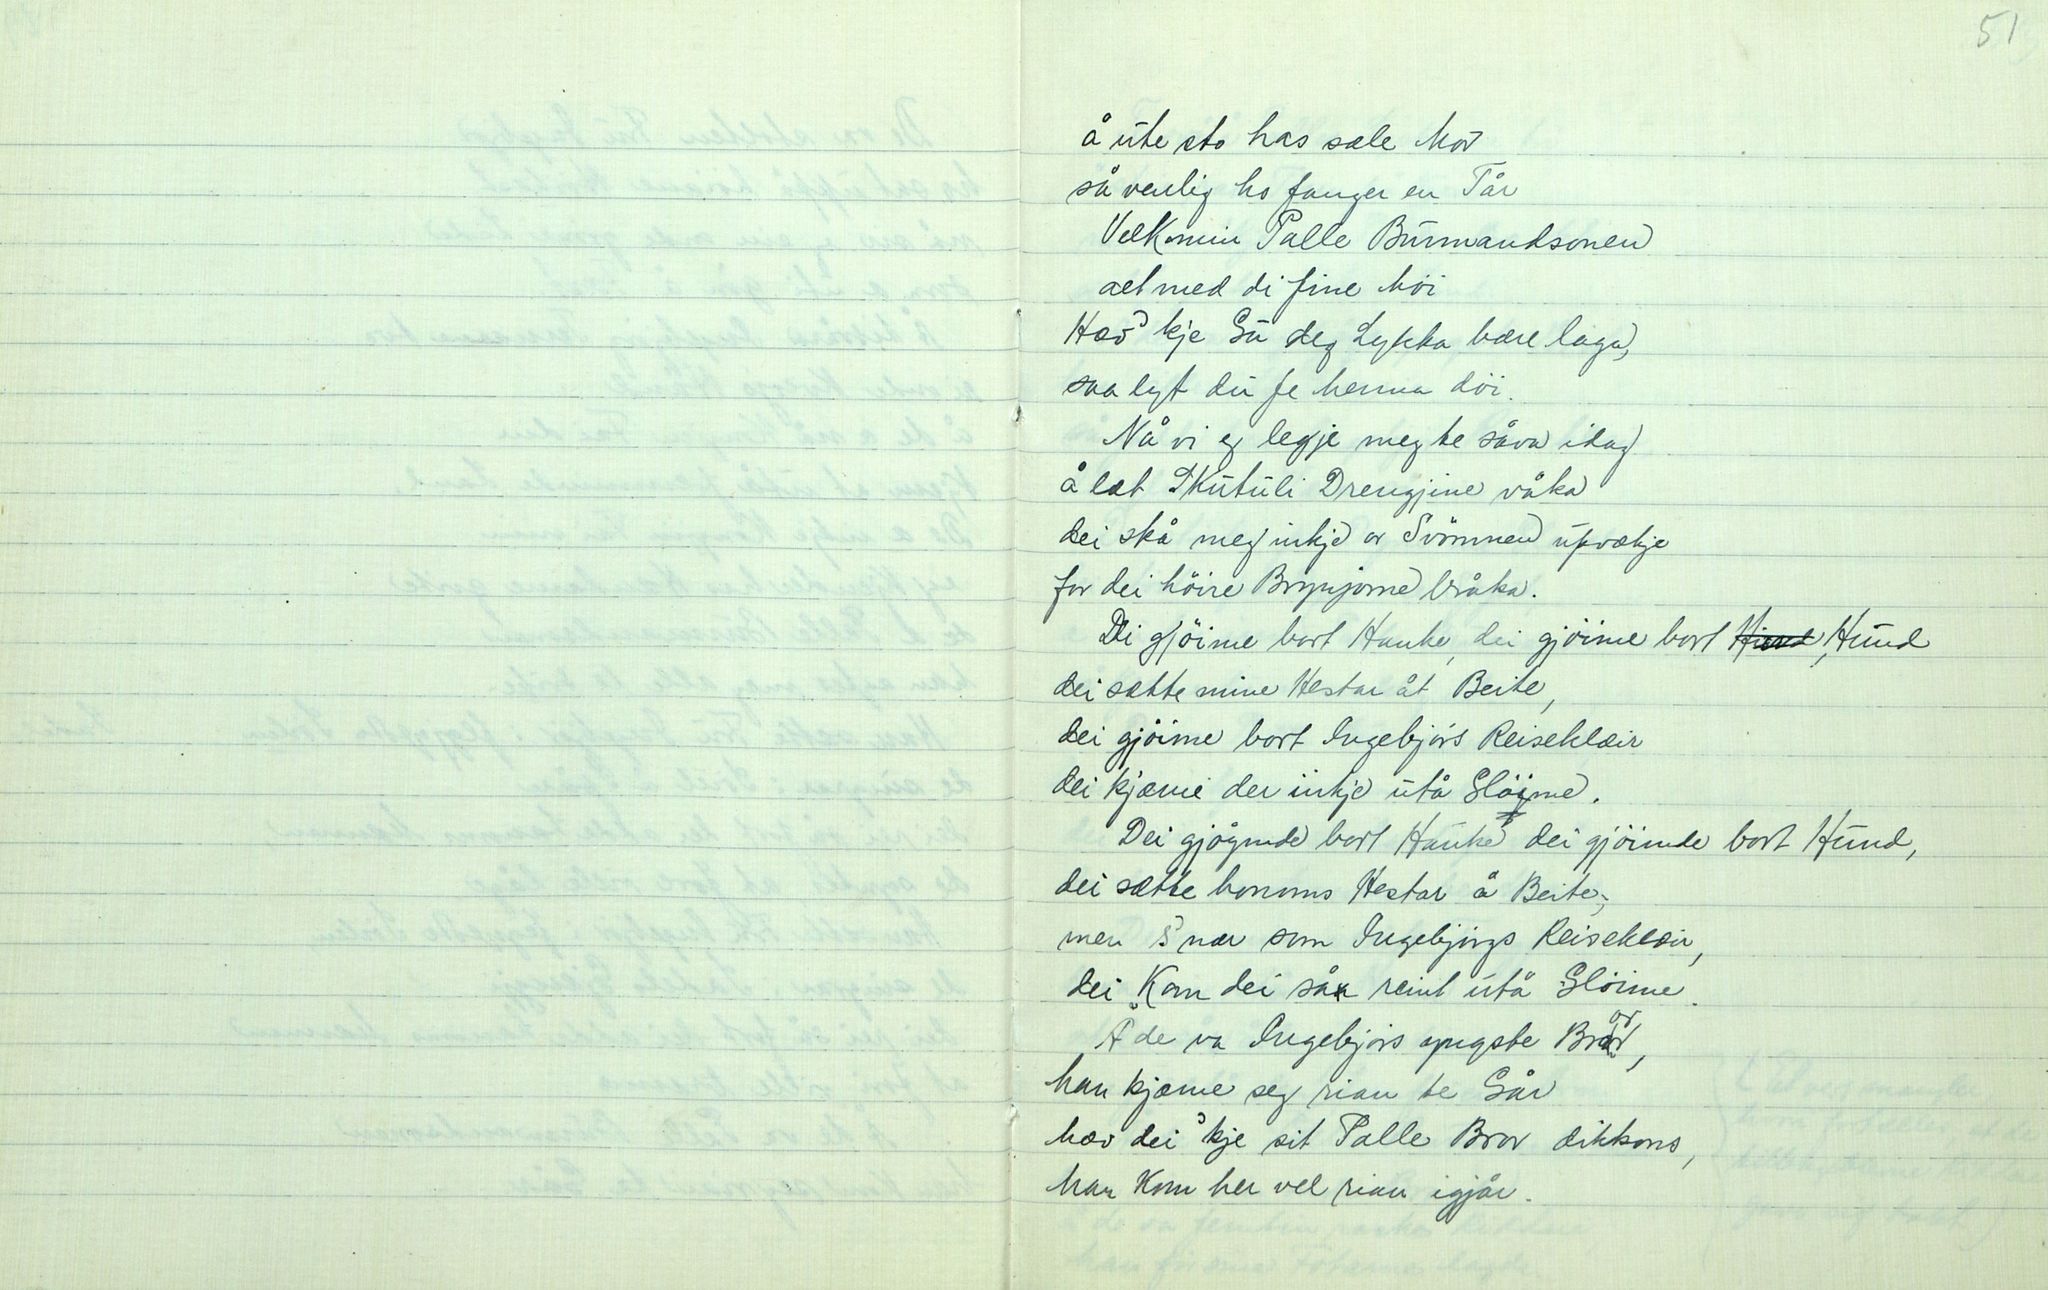 51
å ute sto has sæle Mor
så venlig ho fanger en Tår
Velkomin Palle Burmandsonen
alt med di fine Möi
Hæv' kje Gu deg Lykka bære laga,
saa lyt du fe henna döi.
Nå vi eg legje meg te såva idag
å læt Skutuli Drengjine våka
dei skå meg inkje or Svömnen upvækje
for dei höire Brynjorne bråka.
Di gjöime bort Hauke, dei gjöime bort Hund
dei sætte mine Hestar åt Beite,
dei gjöime bort Ingebjörs Reiseklæir
dei kjæme der inkje utå Glöime.
Dei gjöymde bort Hauke dei gjöimde bort Hund,
dei sætte honoms Hestar å Beite;
men nær som Ingebjörgs Reiseklæir,
dei Kom dei så reint utå Glöime.
Å de va Ingebjörs yngste Bror,
han kjæme seg rian te Går
hæv dei 'kje sit Palle Bror dikkons,
han Kom her vel rian igjår.